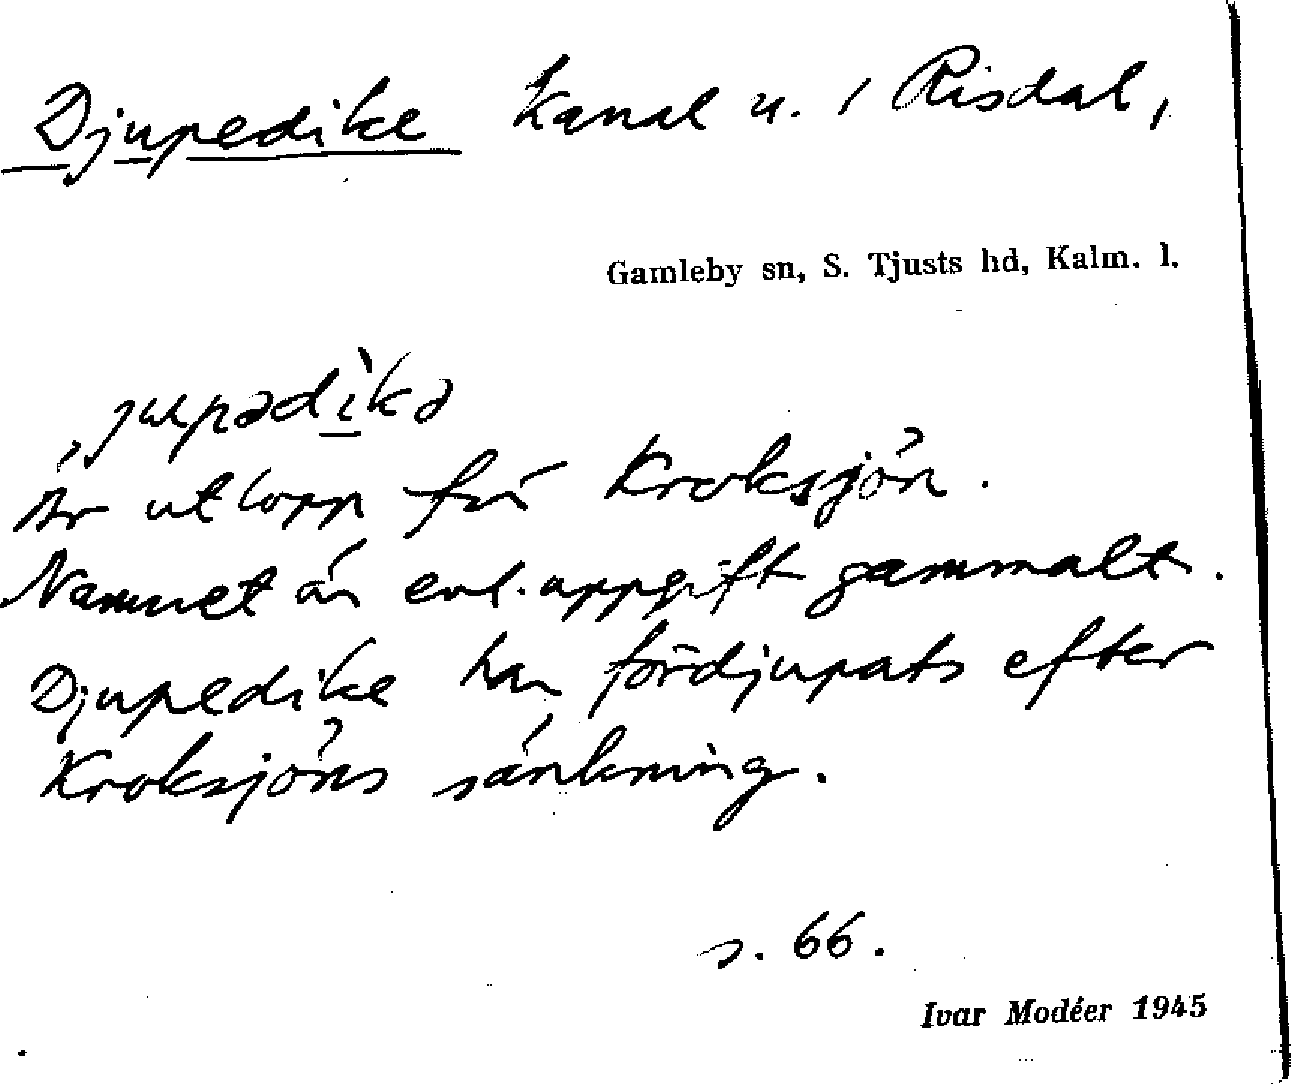 Djupedike Kanal u. / Risdal,
Gamleby sn, S. Tjusts hd, Kalm. l.
jupədìkə
Är utlopp från Kroksjön.
Namnet är enl. uppgift gammalt.
Djupedike har fördjupats efter
Kroksjöns sänkning.
s. 66.
Ivar Modéer 1945